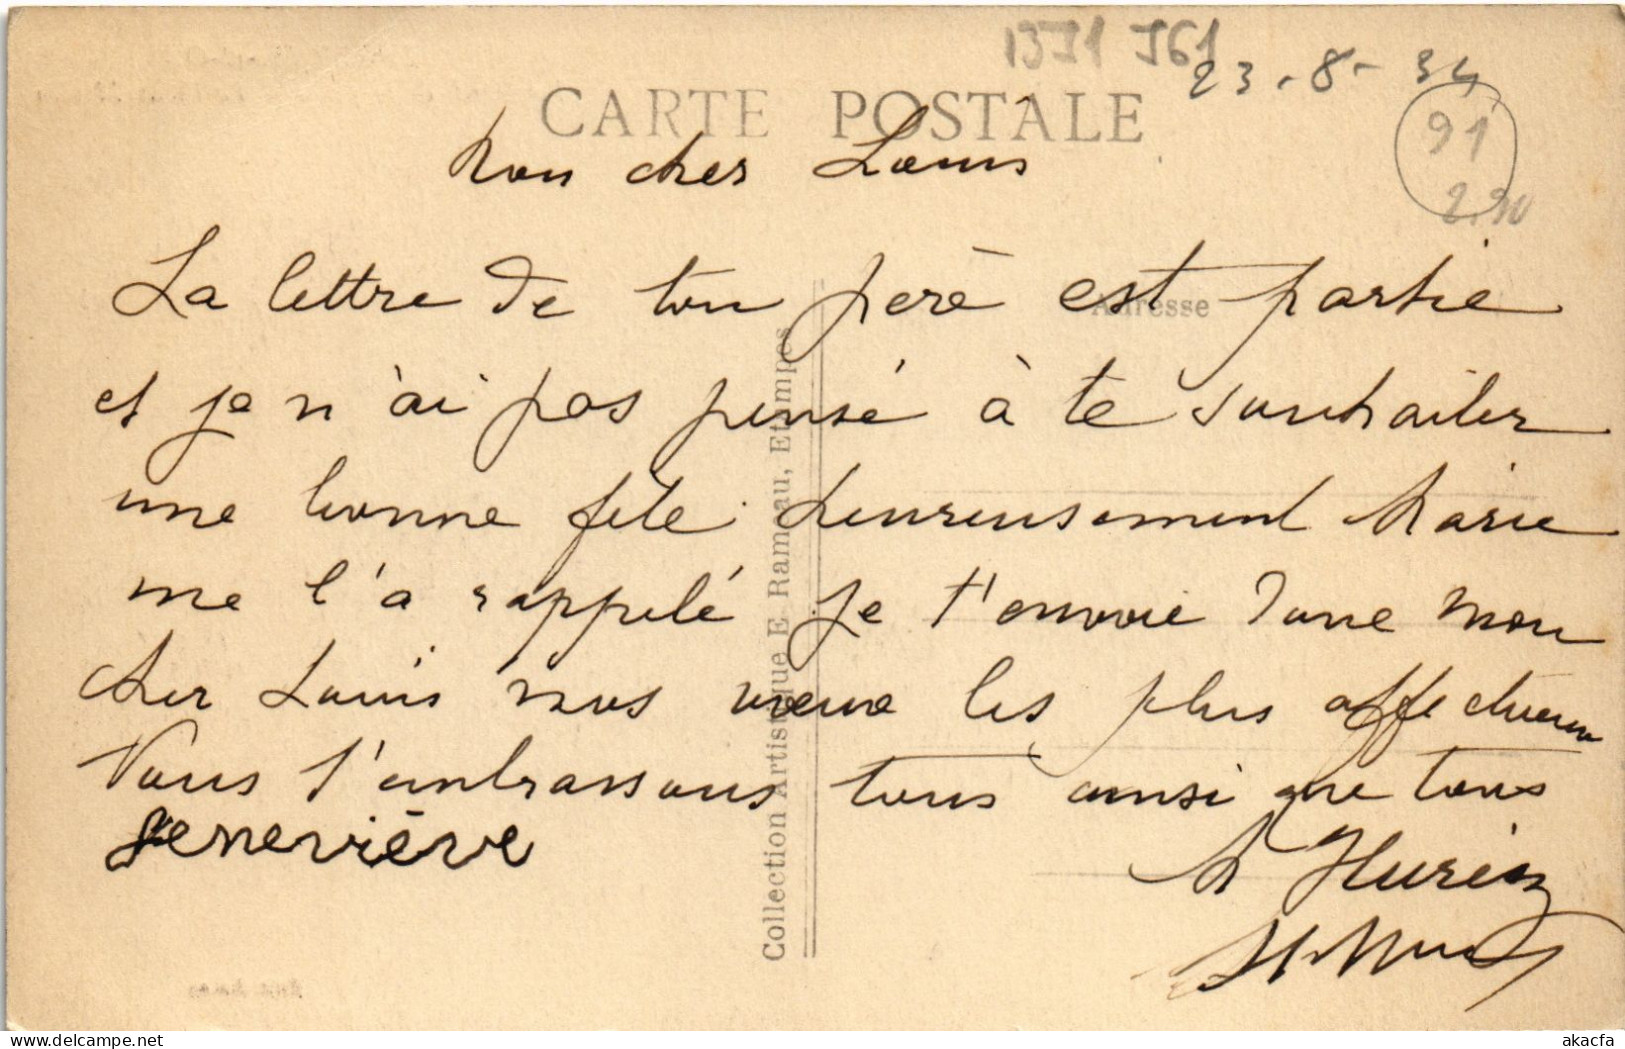 1371 J61
23-8-34
CARTE POSTALE
91
2.90
Mon cher Louis
La lettre de ton père est partie
Adresse
et je n'ai pas pensé à te souhaiter
une bonne fête. heureusement Marie
me l'a rappelé je t'envoie donc mon
cher Louis nos vœux les plus affectueux
Nous t'embrassons tous ainsi que tous
Geneviève
Collection Artistique E. Rameau, Etampes
akacfa